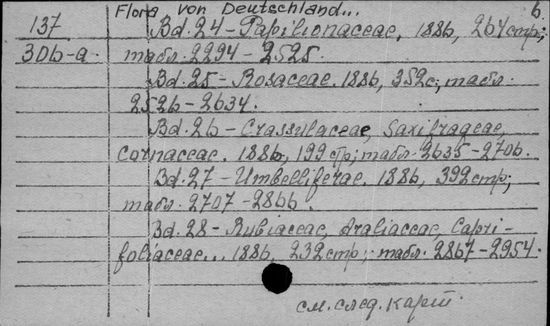 Flora von Deutschland... 6.
137 Bd. 24 - Papilionaceae, 1886, 264 стр;
306-a табл. 2294 - 2525.
Bd. 25 - Rosaceae. 1886, 352 с; табл.
2526 - 2634.
Bd. 26 - Crassulaceae, Saxifrageae,
Cornaceae. 1886, 199 стр; табл. 2635-2706.
Bd. 27 - Umbelliferae. 1886, 392 стр;
табл. 2707 - 2866.
Bd. 28 - Rubiaceae, Araliaceae, Capri-
foliaceae... 1886, 232 стр; табл. 2867-2954.
см. след. карт